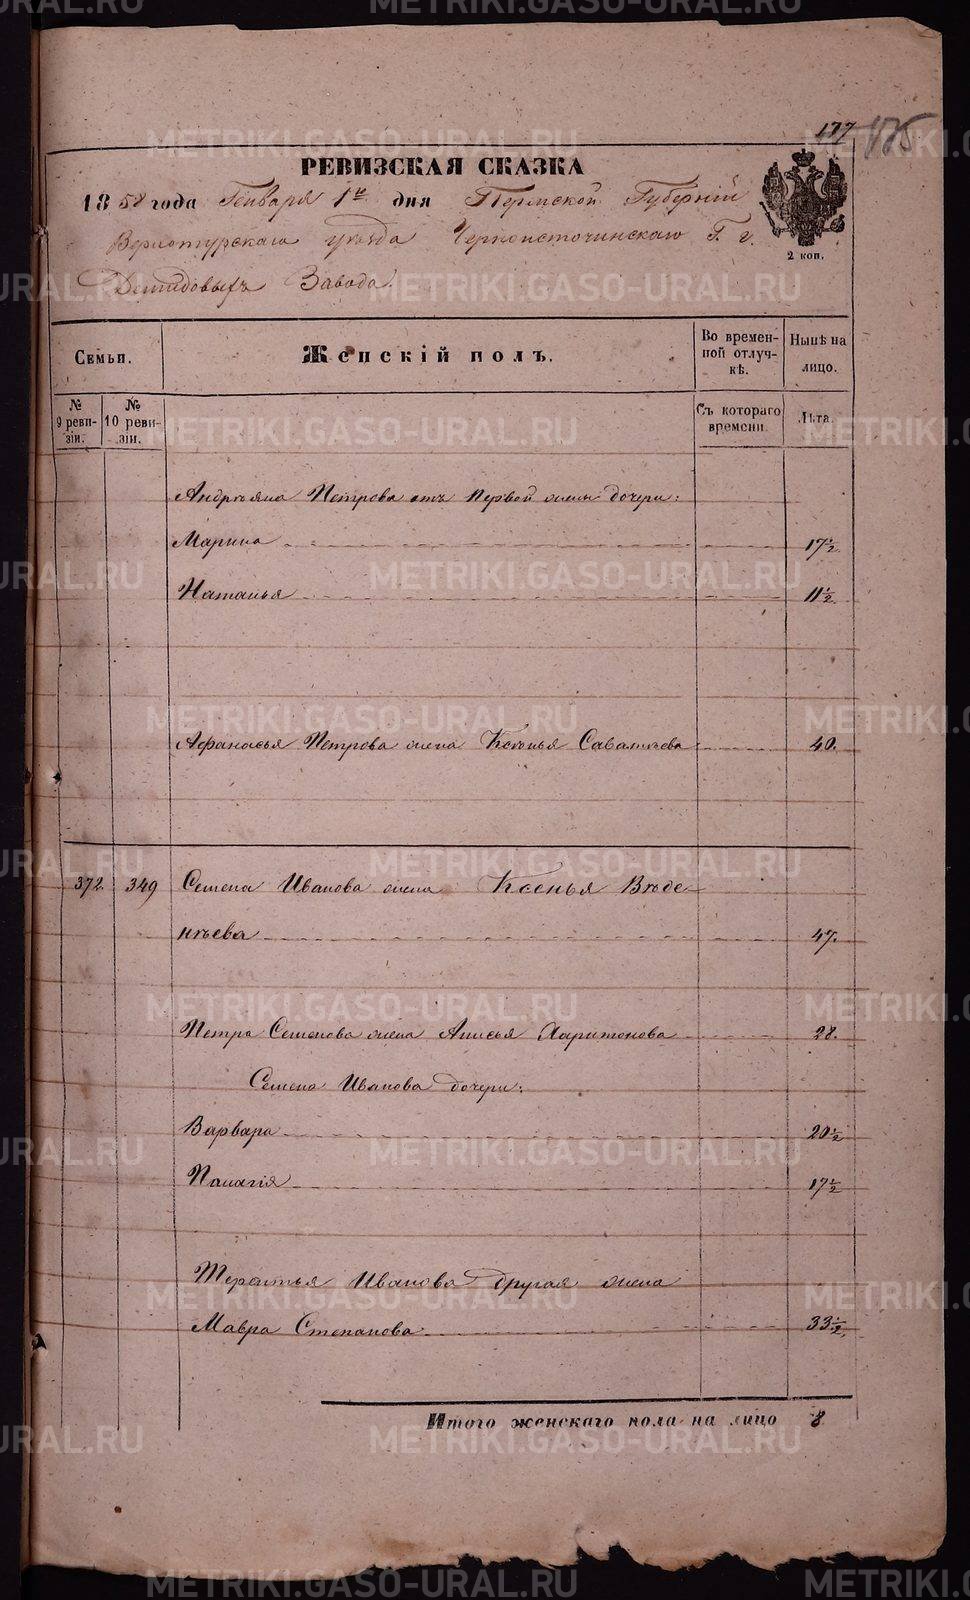 177 175
РЕВИЗСКАЯ СКАЗКА
1858 года Генваря 1го дня Пермской Губернiи
Верхотурскаго уѣзда Черноисточинскаго Г. г.
Демидовыхъ Завода.
2 коп.
Семьи. Женскiй полъ. Во времен-ной отлуч-кѣ. Нынѣ на лицо.
№ 9 реви-зiи. № 10 реви-зiи. Съ котораго времени. Лѣта.
Андреяна Петрова отъ первой жены дочери:
Марина 17½
Наталья 11½
Афанасья Петрова жена Ксенья Савельева 40.
372. 349 Семена Иванова жена Ксенья Веде-
нѣева 47.
Петра Семенова жена Анисья Харитонова 28.
Семена Иванова дочери:
Варвара 20½
Палагiя 17½
Терентья Иванова другая жена
Мавра Степанова 33½
Итого женскаго пола на лицо 8
METRIKI.GASO-URAL.RU